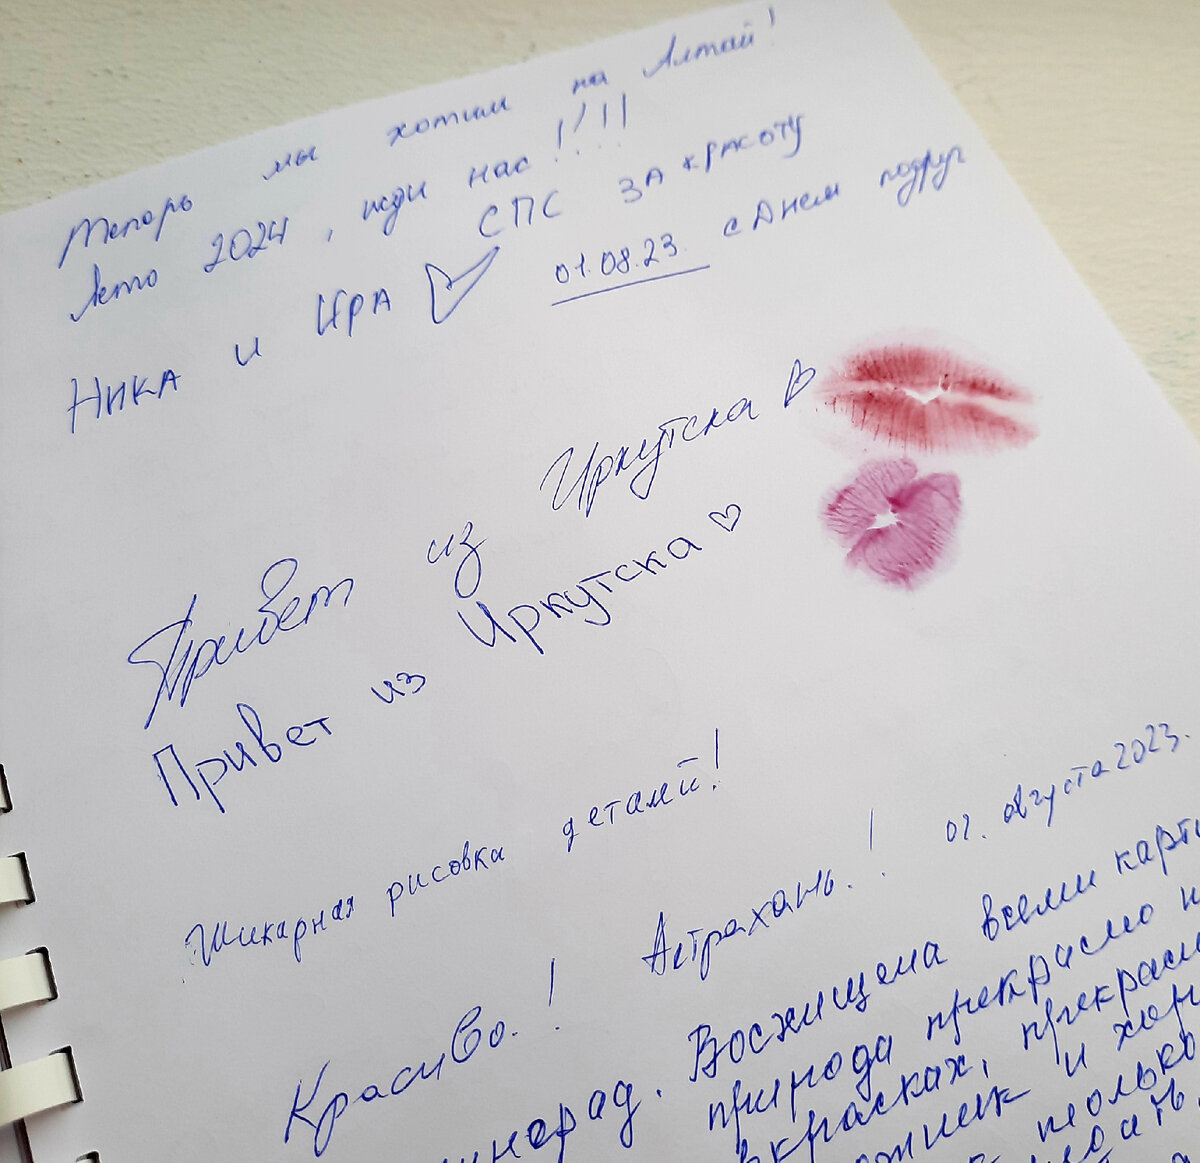 Теперь мы хотим на Алтай!
Лето 2024, жди нас!!!!
Ника и Ира СПС за красоту
01.08.23. с Днем подруг
Привет из Иркутска
Привет из Иркутска
Шикарная рисовка деталей!
Красиво.! Астрахань.! 02. августа 2023.
Восхищена всеми
природа прекрасно
красках,
и
только